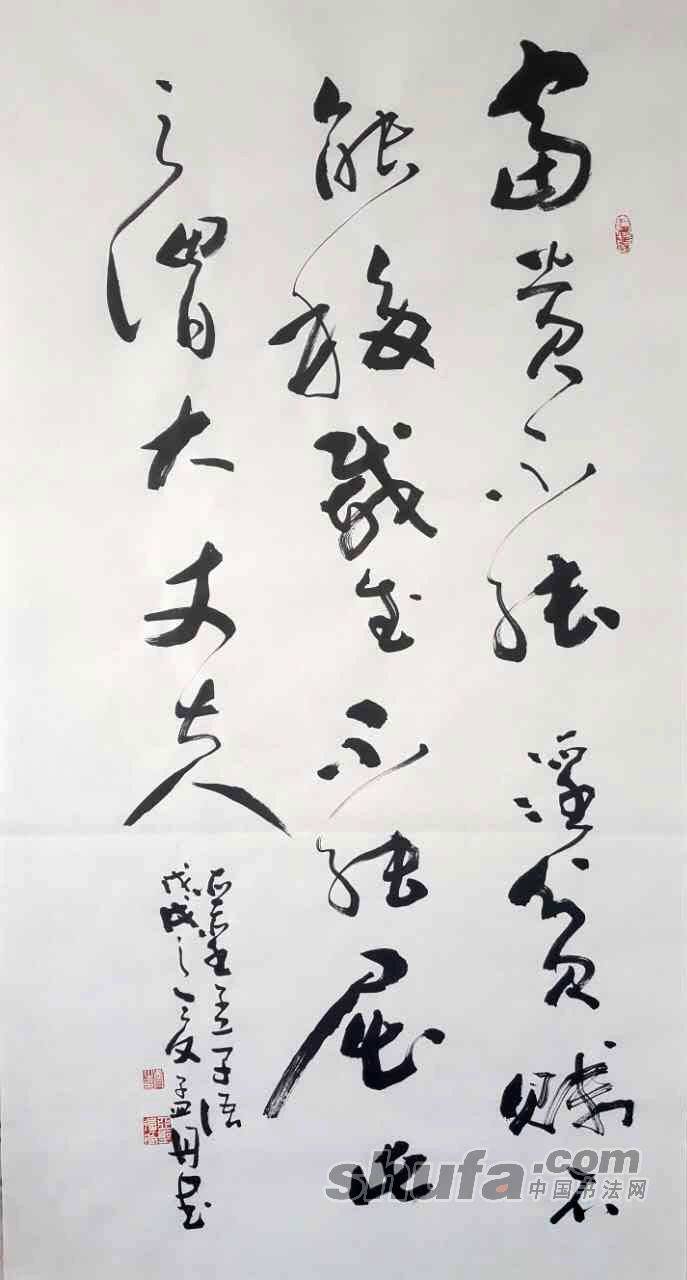 富貴不能淫貧賤不
能移威武不能屈此
之謂大丈夫
孟子语
戊戌之夏孟丹书
shufa.com
中国书法网